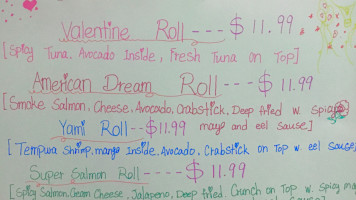 Valentine Roll --- $ 11.99
[Spicy Tuna, Avocado Inside, Fresh Tuna on Top]
American Dream Roll --- $ 11.99
[Smoke Salmon, Cheese, Avocado, Crabstick, Deep fried w. Spicy
Yami Roll -- $11.99 mayo and eel sause]
[Tempura Shrimp, mango Inside, Avocado, Crabstick on Top w. eel sause]
Super Salmon Roll ---- $ 11.99
[Spicy Salmon, Cream Cheese, Jalapeno, Deep fried. Crunch on Top w. Spicy